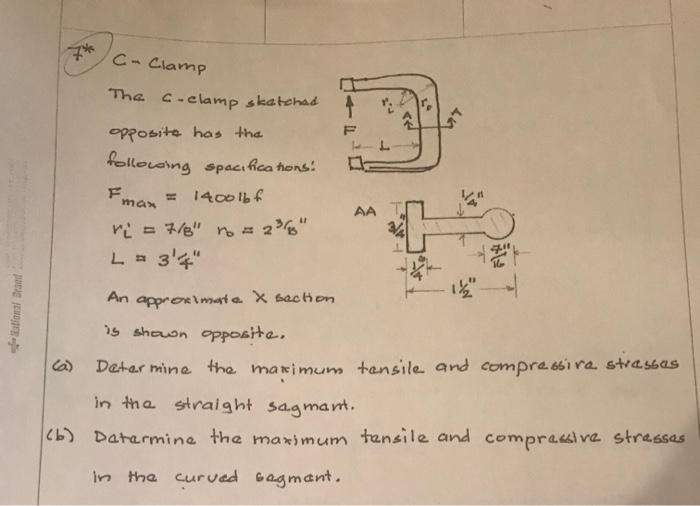 7*
C-Clamp
The C-clamp sketched
opposite has the
following specifications:
Fmax = 1400 lbf
ri = 7/8" ro = 2 3/8"
L = 3 1/4"
An approximate X section
is shown opposite.
ri
ro
A
A
F
L
AA
1/4"
3/4"
1/4"
7/16"
1 1/2"
(a) Determine the maximum tensile and compressive stresses
in the straight segment.
(b) Determine the maximum tensile and compressive stresses
in the curved segment.
National Brand